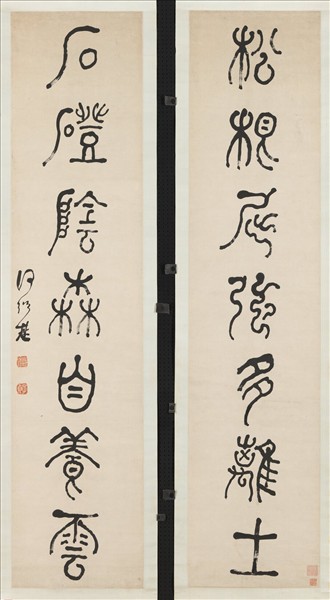 松根屈强多離土
石磴陰森自養雲
何紹基